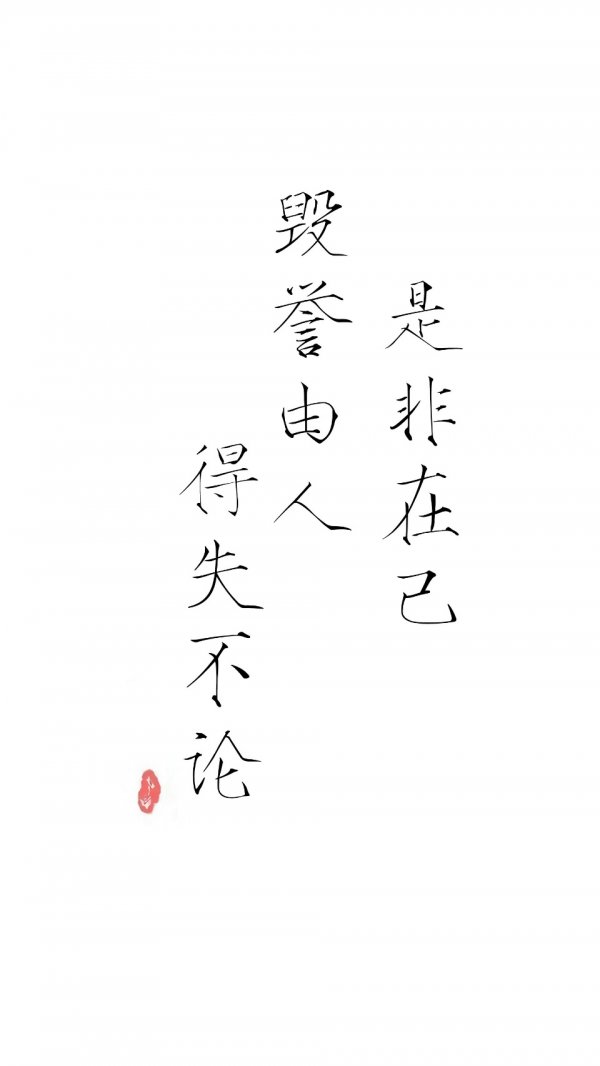 是非在己
毁誉由人
得失不论